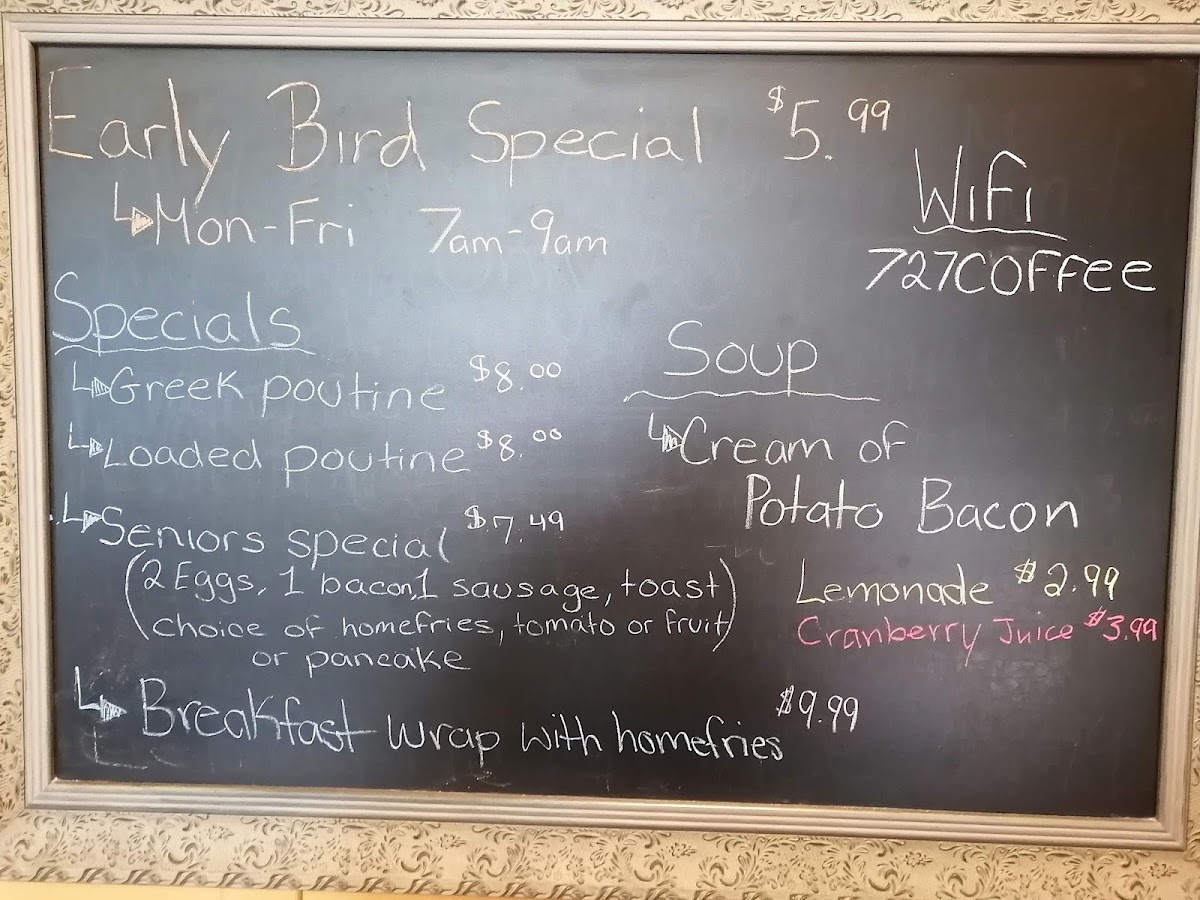 Early Bird Special $5.99
Mon-Fri 7am-9am
WiFi
727COFFEE
Specials
Greek poutine $8.00
Loaded poutine $8.00
Seniors special $7.49
(2 Eggs, 1 bacon, 1 sausage, toast
choice of homefries, tomato or fruit)
or pancake
Breakfast wrap with homefries $9.99
Soup
Cream of
Potato Bacon
Lemonade $2.99
Cranberry Juice $3.99